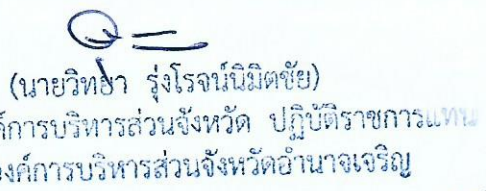 (นายวิทยา รุ่งโรจน์นิมิตชัย)
ค์การบริหารส่วนจังหวัด ปฏิบัติราชการแทน
งค์การบริหารส่วนจังหวัดอำนาจเจริญ